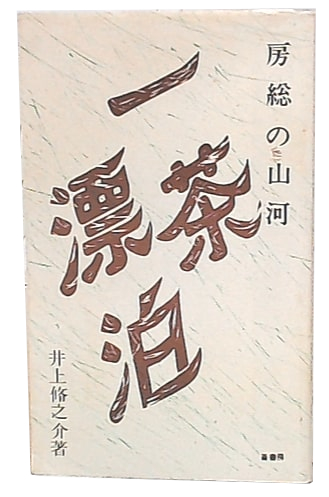 房総の山河
一茶
漂泊
井上脩之介著
崙書房